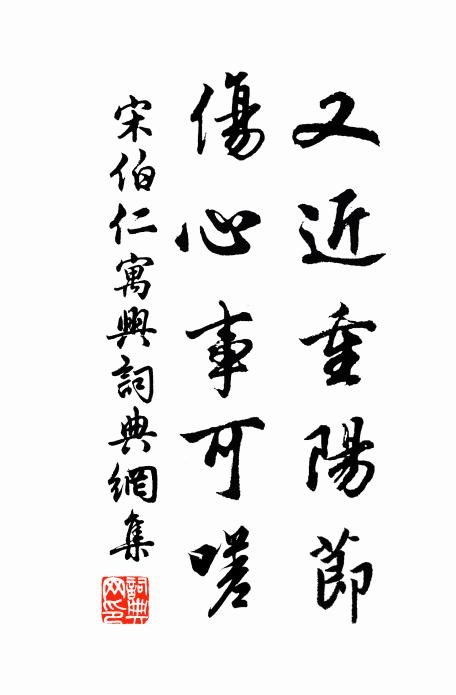 又近重陽節
傷心事可嗟
宋伯仁寓興詞典網集
詞典網印